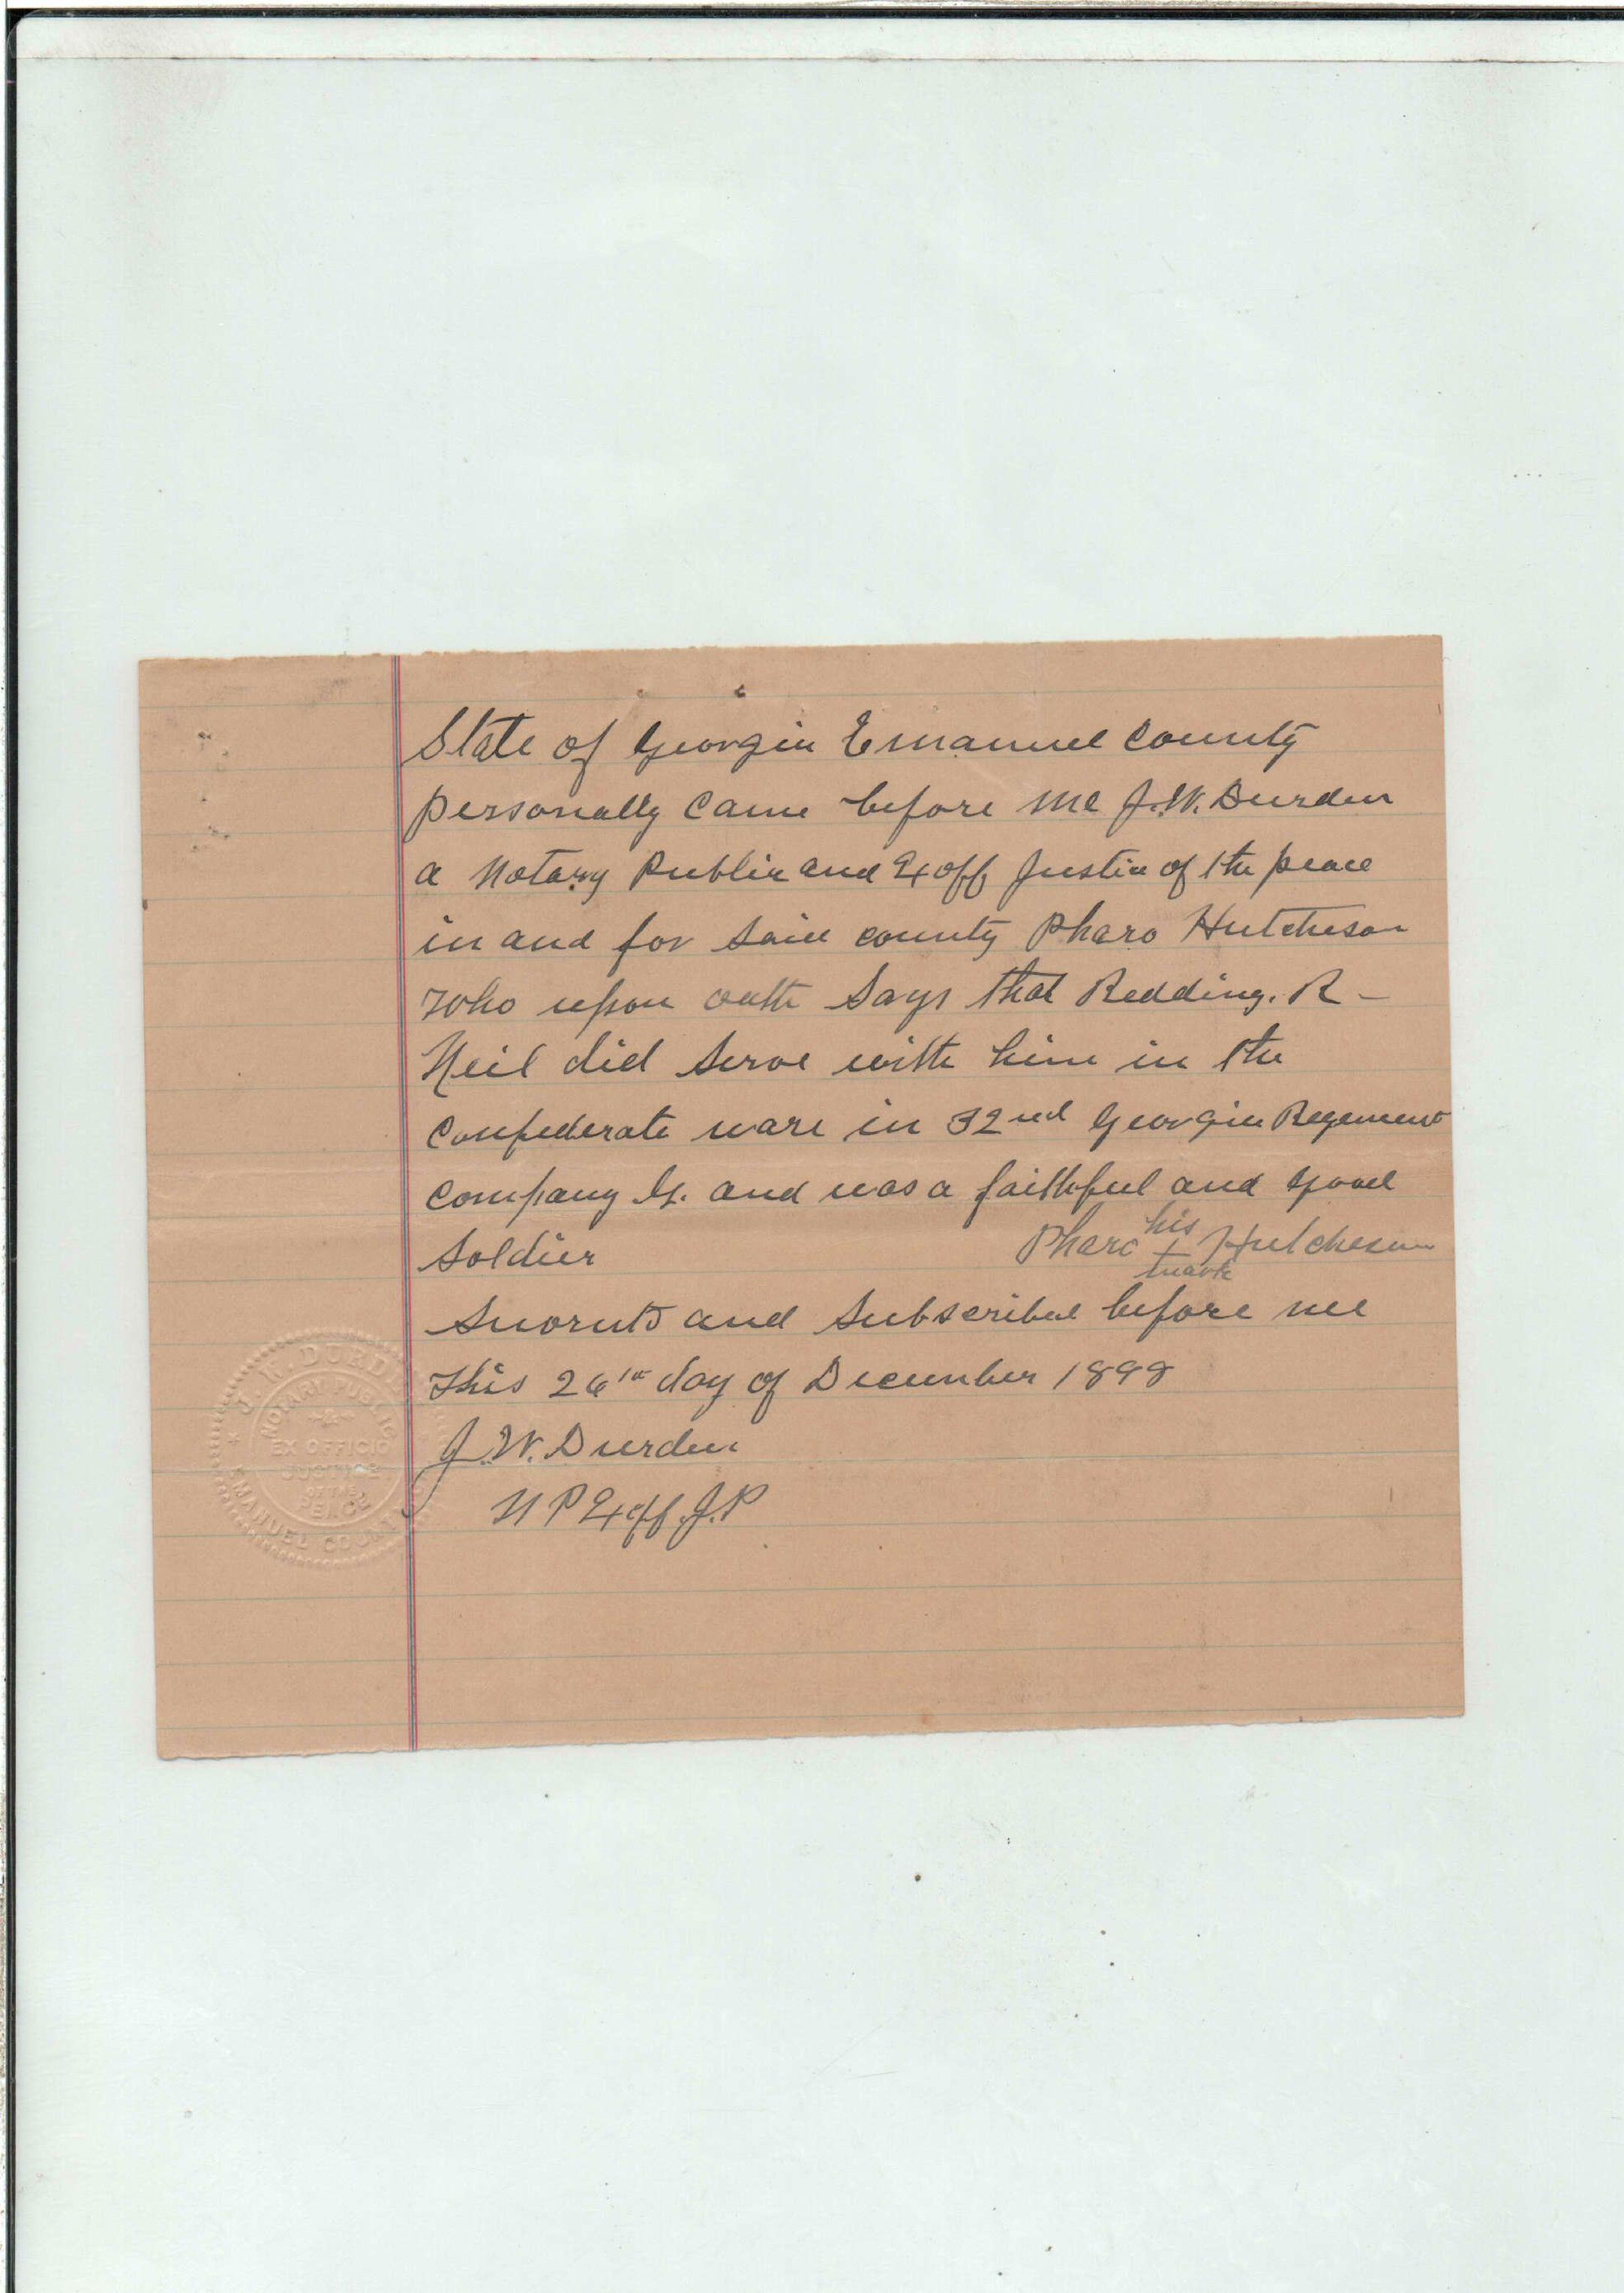 State of Georgia Emanuel County
personally Came before me J.W. Durden
a Notary Public and Exoff Justice of the peace
in and for Said county Pharo Hutcheson
who upon oath Says that Redding. R -
Neil did Serve with him in the
Confederate ware in 32nd Georgia Regement
Company G. and was a faithful and good
Soldier
Pharo his + mark Hutcheson
Swornto and Subscribed before me
This 26th day of December 1898
J.W. Durden
N P Exoff. J.P
J. W. DURDEN
NOTARY PUBLIC
EX OFFICIO
JUSTICE
OF THE
PEACE
EMANUEL COUNTY